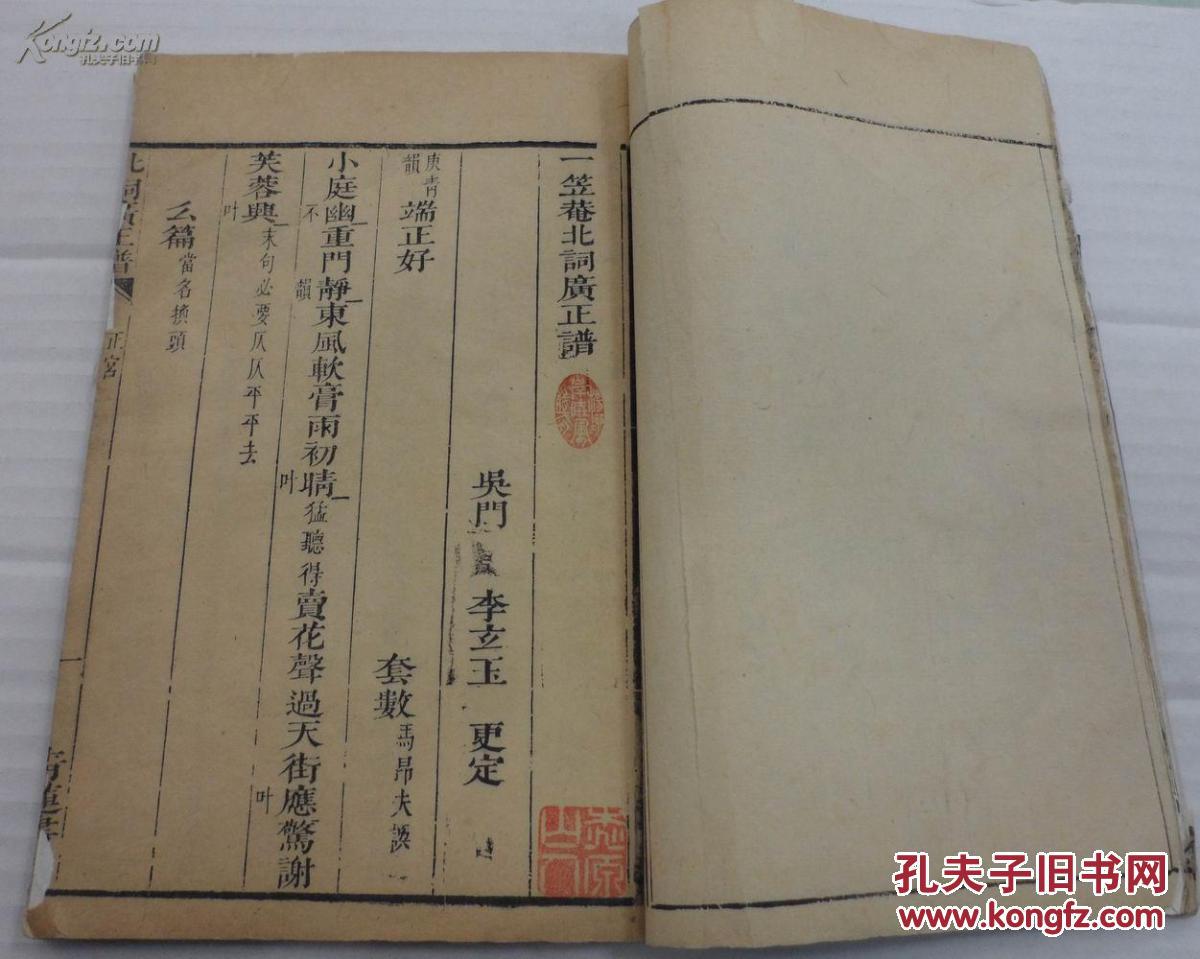 一笠菴北詞廣正譜
吳門 李玄玉 更定
庚青韻 端正好 套數 馬昂夫譔
小庭幽不重門靜韻東風軟膏雨初晴叶猛聽得賣花聲過天街應驚謝叶
芙蓉興叶末句必要仄仄平平去
么篇當名換頭
北詞廣正譜 正宮 一 青蓮書
Kongfz.com
孔夫子旧书网
孔夫子旧书网
www.kongfz.com